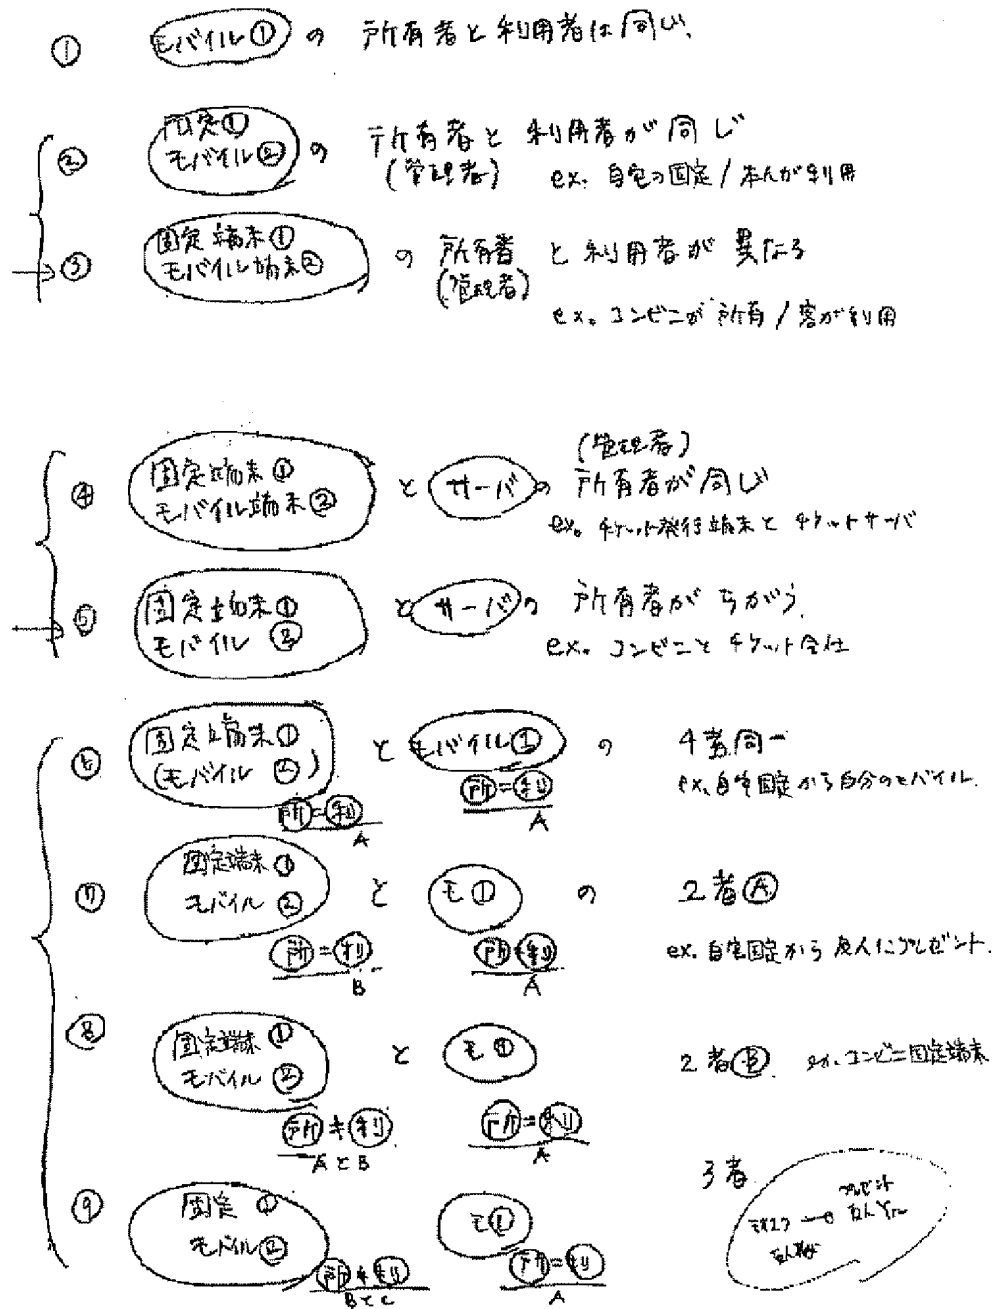 ① モバイル① の 所有者と利用者は同じ、
② 固定① モバイル② の 所有者と利用者が同じ
(管理者) ex. 自宅の固定/本人が利用
③ 固定端末① モバイル端末② の 所有者と利用者が異なる
(管理者)
ex. コンビニが所有/客が利用
(管理者)
④ 固定端末① モバイル端末② と サーバの 所有者が同じ
ex. チケット発行端末とチケットサーバ
⑤ 固定端末① モバイル② と サーバの 所有者がちがう.
ex. コンビニとチケット会社
⑥ 固定端末① (モバイル②) と モバイル① の 4者同一
ex. 自宅固定から自分のモバイル.
所=利 所=利
A A
⑦ 固定端末① モバイル② と モ① の 2者Ⓐ
ex. 自宅固定から友人にプレゼント.
所=利 所=利
B A
⑧ 固定端末① モバイル② と モ① 2者Ⓑ. ex. コンビニ固定端末
所≠利 所=利
AとB A
3者
⑨ 固定① モバイル② モ①
プレゼント
所≠利 所=利
BとC A